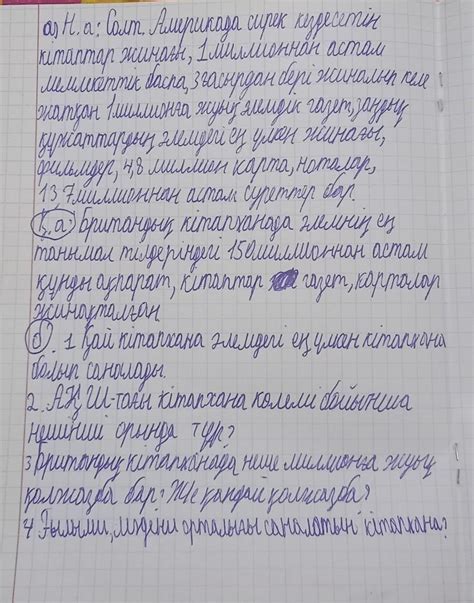 а) Н. а: Солт. Америкада сирек кездесетін
кітаптар жинағы, 1 миллионнан астам
мемлекеттік баспа, 3 ғасырдан бері жиналып келе
жатқан 1 миллионға жуық әлемдік газет, заңдық
құжаттардың әлемдегі ең үлкен жинағы,
фильмдер, 4,8 миллион карта, ноталар,
13 7миллионнан астам суреттер бар.
Қ.а: Британдық кітапханада әлемнің ең
танымал тілдеріндегі 150 миллионнан астам
құнды ақпарат, кітаптар газет, карталар
жинақталған
б) 1 Қай кітапхана әлемдегі ең үлкен кітапхана
болып саналады.
2. АҚШ-тағы кітапхана көлемі бойынша
нешінші орында тұр?
3 Британдық кітапханада неше миллионға жуық
қолжазба бар? Не қандай қолжазба?
4 Ғылыми, мәдени орталығы саналатын кітапхана?